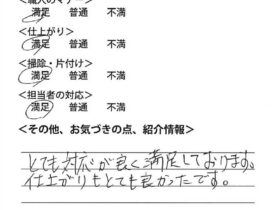 <職人のマナー>
満足 普通 不満
<仕上がり>
満足 普通 不満
<掃除・片付け>
満足 普通 不満
<担当者の対応>
満足 普通 不満
<その他、お気づきの点、紹介情報>
とても対応が良く満足しております。
仕上がりもとても良かったです。